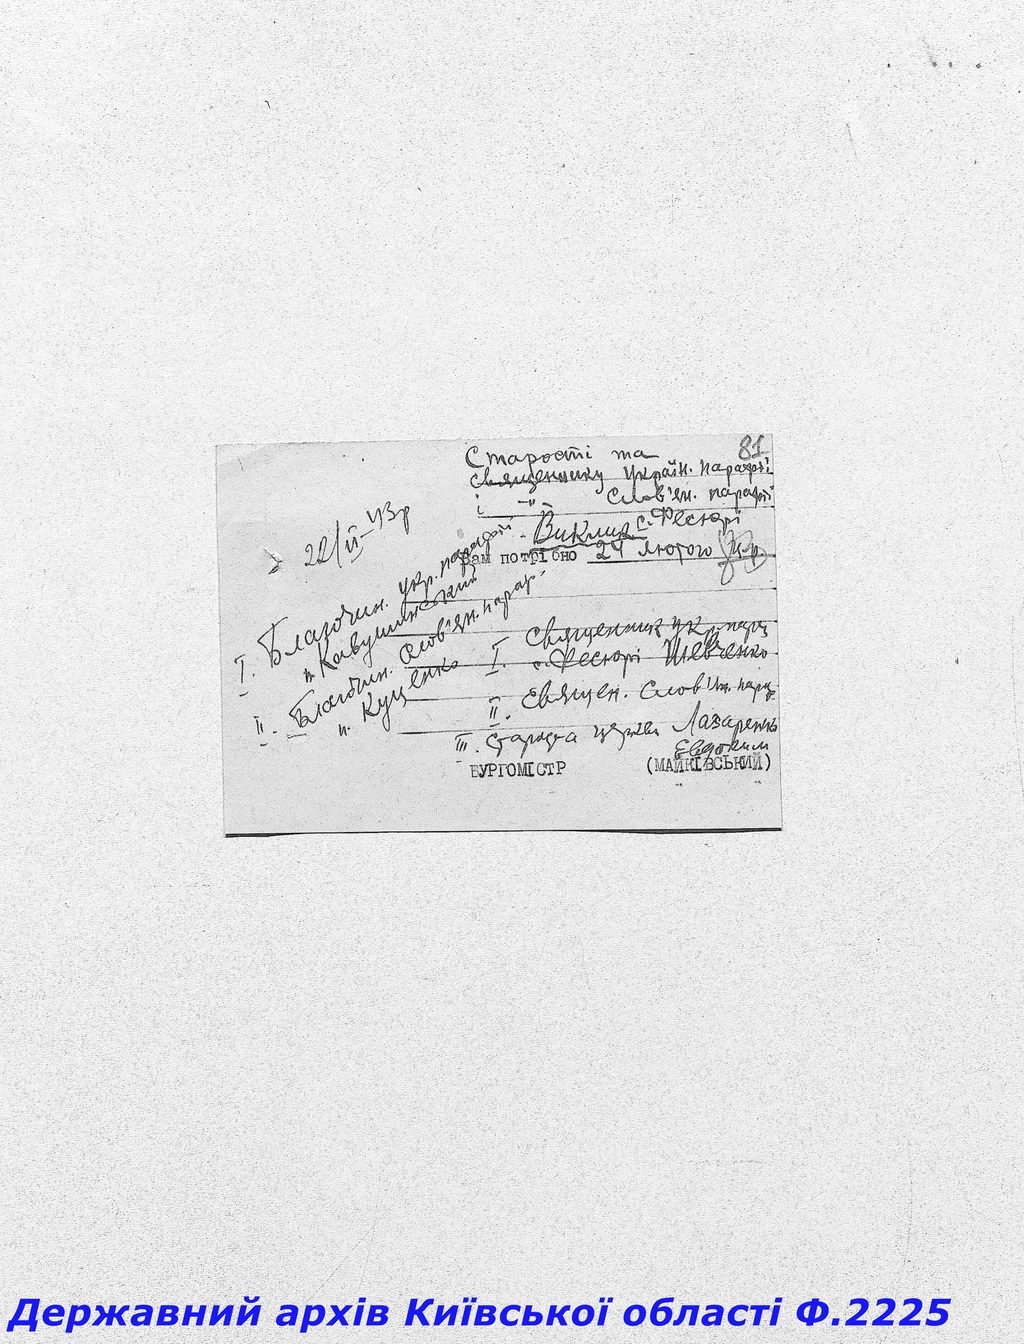 81
Старості та
Священнику Україн. парафії
і —"— Слов'ян. парафії
с. Фесюрі
- Виклик
Вам потрібно 24 лютого
22/II-43р
I. Благочин. укр. парафії
п. Кавушинський
II. Благочин. Слов'ян. параф.
п. Куценко
I. Священник укр. параф.
с. Фесюрі Шевченко
II. Священ. Слов'ян. параф.
III. Староста церкви Лазаренко
Евдоким
БУРГОМІСТР (МАЙКІВСЬКИЙ)
Державний архів Київської області Ф.2225